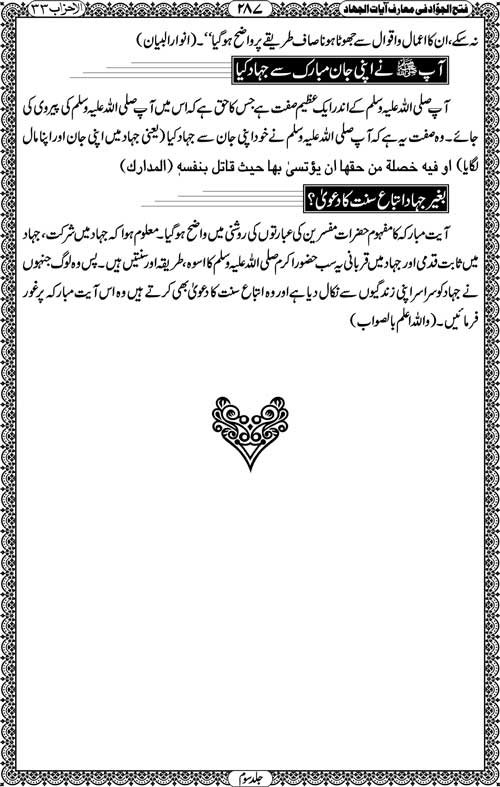 فتح الجوّاد فی معارف آیات الجهاد ۲۸۷ الاحزاب ۳۳
نہ سکے، ان کا اعمال و اقوال سے جھوٹا ہونا صاف طریقے پر واضح ہو گیا‘‘۔ (انوار البیان)
آپ ﷺ نے اپنی جان مبارک سے جہاد کیا
آپ صلی اللہ علیہ وسلم کے اندر ایک عظیم صفت ہے جس کا حق ہے کہ اس میں آپ صلی اللہ علیہ وسلم کی پیروی کی
جائے۔ وہ صفت یہ ہے کہ آپ صلی اللہ علیہ وسلم نے خود اپنی جان سے جہاد کیا (یعنی جہاد میں اپنی جان اور اپنا مال
لگایا) او فيه خصلة من حقها ان يؤتسیٰ بها حيث قاتل بنفسهٖ (المدارك)
بغیر جہاد اتباع سنت کا دعویٰ؟
آیت مبارکہ کا مفہوم حضرات مفسرین کی عبارتوں کی روشنی میں واضح ہو گیا۔ معلوم ہوا کہ جہاد میں شرکت، جہاد
میں ثابت قدمی اور جہاد میں قربانی یہ سب حضور اکرم صلی اللہ علیہ وسلم کا اسوہ، طریقہ اور سنتیں ہیں۔ پس وہ لوگ جنہوں
نے جہاد کو سراسر اپنی زندگیوں سے نکال دیا ہے اور وہ اتباع سنت کا دعویٰ بھی کرتے ہیں وہ اس آیت مبارکہ پر غور
فرمائیں۔ (واللہ اعلم بالصواب)
جلد سوم